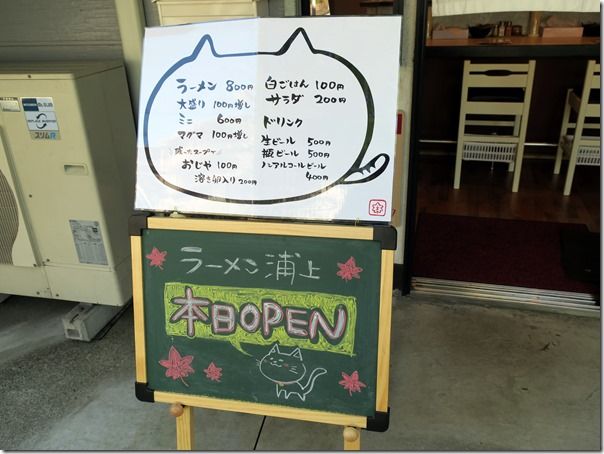 ラーメン 800円
大盛り 100円増し
ミニ 600円
マグマ 100円増し
残ったスープで
おじや 100円
溶き卵入り 200円
白ごはん 100円
サラダ 200円
ドリンク
生ビール 500円
瓶ビール 500円
ノンアルコールビール
400円
ラーメン 浦上
本日OPEN
スリムR